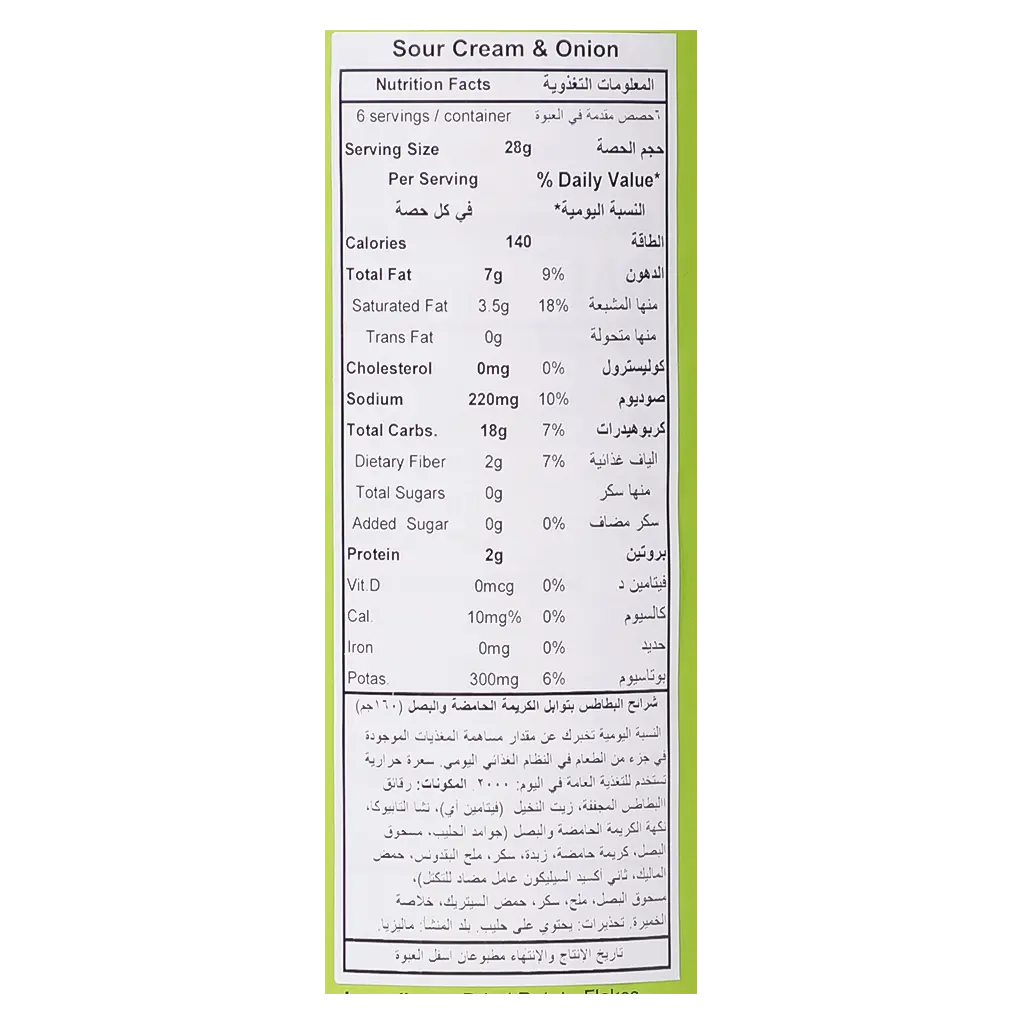 Sour Cream & Onion
Nutrition Facts المعلومات التغذوية
6 servings / container ٦حصص مقدمة في العبوة
Serving Size 28g حجم الحصة
Per Serving % Daily Value*
في كل حصة النسبة اليومية*
Calories 140 الطاقة
Total Fat 7g 9% الدهون
Saturated Fat 3.5g 18% منها المشبعة
Trans Fat 0g منها متحولة
Cholesterol 0mg 0% كوليسترول
Sodium 220mg 10% صوديوم
Total Carbs. 18g 7% كربوهيدرات
Dietary Fiber 2g 7% الياف غذائية
Total Sugars 0g منها سكر
Added Sugar 0g 0% سكر مضاف
Protein 2g بروتين
Vit.D 0mcg 0% فيتامين د
Cal. 10mg% 0% كالسيوم
Iron 0mg 0% حديد
Potas. 300mg 6% بوتاسيوم
شرائح البطاطس بتوابل الكريمة الحامضة والبصل (١٦٠جم)
النسبة اليومية تخبرك عن مقدار مساهمة المغذيات الموجودة
في جزء من الطعام في النظام الغذائي اليومي. سعرة حرارية
تستخدم للتغذية العامة في اليوم: ٢٠٠٠. المكونات: رقائق
االبطاطس المجففة، زيت النخيل (فيتامين أي)، نشا التابيوكا،
نكهة الكريمة الحامضة والبصل (جوامد الحليب، مسحوق
البصل، كريمة حامضة، زبدة، سكر، ملح البقدونس، حمض
الماليك، ثاني اكسيد السيليكون عامل مضاد للتكتل)،
مسحوق البصل، ملح، سكر، حمض السيتريك، خلاصة
الخميرة. تحذيرات: يحتوي على حليب. بلد المنشأ: ماليزيا.
تاريخ الإنتاج والإنتهاء مطبوعان اسفل العبوة